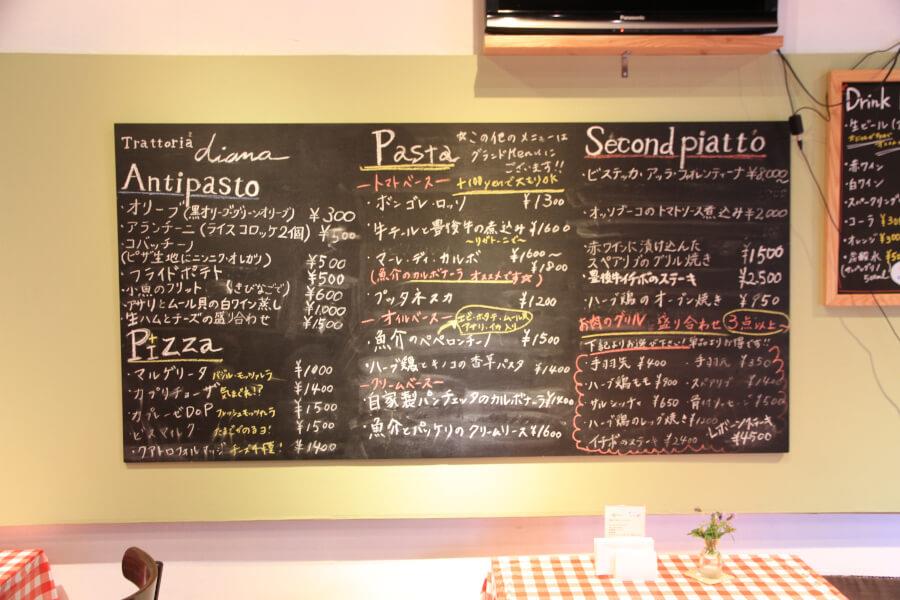 Panasonic
Trattoria
diana
Antipasto
・オリーブ(黒オリーブ グリーンオリーブ) ¥300
・アランチーニ(ライスコロッケ2個) ¥500
・コバッチーノ
(ピザ生地にニンニク・オレガノ) ¥500
・フライドポテト ¥500
・小魚のフリット (きびなご) ¥600
・アサリとムール貝の白ワイン蒸し ¥1,000
・生ハムとチーズの盛り合わせ ¥1500
Pizza
・マルゲリータ バジル・モッツァレラ ¥1000
・カプリチョーザ 気まぐれ!? ¥1400
・カプレーゼDOP フレッシュモッツァレラ ¥1500
・ビスマルク たまごがのるヨ! ¥1500
・クアトロフォルマッジ チーズ4種! ¥1400
Pasta
☆この他のメニューは
グランドMenuに
ございます!!
ートマトベースー +100yenで大もりOK
・ボンゴレ・ロッソ ¥1300
・牛テールと豊後牛の煮込み ¥1600
〜リガトーニで〜
・マーレ・ディ・カルボ ¥1600〜
(魚介のカルボナーラ オススメです☆) ¥1800
・プッタネスカ ¥1200
ーオイルベースー
エビ・ホタテ・ムール貝
アサリ・イカ入り
・魚介のペペロンチーノ ¥1500
・ハーブ鶏とキノコの香草パスタ ¥1400
ークリームベースー
・自家製パンチェッタのカルボナーラ
・魚介とパッケリのクリームソース ¥1600
Second piatto
・ビステッカ・アッラ・フィオレンティーナ ¥8000〜
・オッソブーコのトマトソース煮込み ¥2,000
・赤ワインに漬け込んだ
スペアリブのグリル焼き ¥1500
・豊後牛イチボのステーキ ¥2,500
・ハーブ鶏のオーブン焼き ¥950
お肉のグリル 盛り合わせ 3点以上〜
下記よりお選び下さい! 単品よりお得です!!
・手羽先 ¥400 ・手羽元 ¥350
・ハーブ鶏もも ¥800 ・スペアリブ ¥1400
・サルシッチャ ¥650 骨付ソーセージ ¥500
・ハーブ鶏のレッグ焼き ¥1200
・イチボのステーキ ¥2400
¥4500
Drink
・生ビール
・赤ワイン
・白ワイン
・スパークリング
・コーラ ¥300
・オレンジ ¥300
・炭酸水
500ml